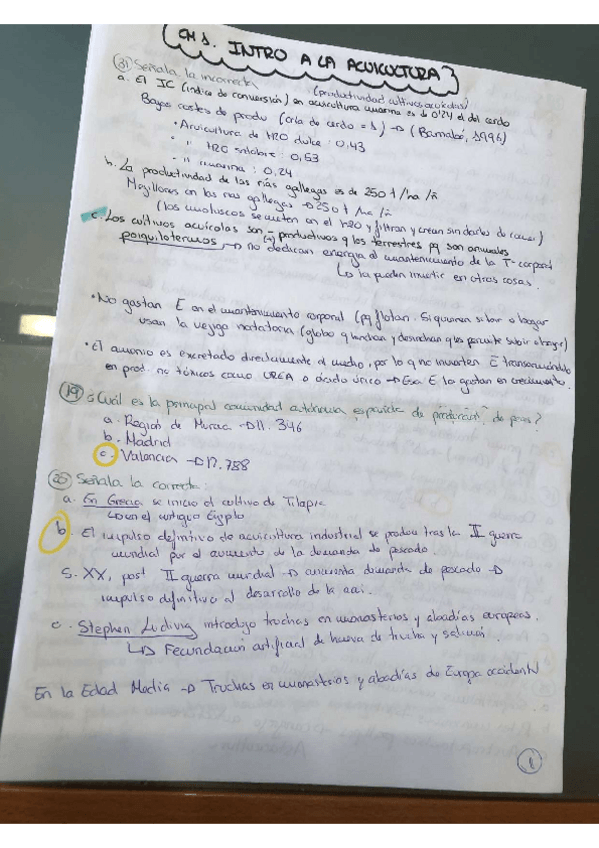 CH 1. INTRO A LA ACUICULTURA
31 Señala la incorrecta (productividad cultivos acuícolas)
a. El IC (índice de conversión) en acuicultura marina es de 0'24 el del cerdo
Bajos costes de produ (cría de cerdo = 1) → (Barnabé, 1996)
• Acuicultura de H2O dulce : 0,43
• " H2O salobre : 0,53
• " marina : 0,24
b. La productividad de las rías gallegas es de 250 t/ha/ñ
Mejillones en las rías gallegas → 250 t/ha/ñ
(los moluscos se meten en el H2O y filtran y crean sin darles de comer)
c. Los cultivos acuícolas son - productivos q los terrestres pq son animales
(+)
poiquilotermos → no dedican energía al mantenimiento de la Tª corporal
↳ la pueden invertir en otras cosas.
• No gastan E en el mantenimiento corporal (pq flotan. Si quieren subir o bajar
usan la vejiga natatoria (globo q hinchan y deshinchan q les permite subir o bajar)
• El amonio es excretado directamente al medio, por lo q no invierten E transformándolo
en prod. no tóxicos como UREA o ácido úrico → Esa E la gastan en crecimiento.
19 ¿Cuál es la principal comunidad autónoma española de producción de peces?
a. Región de Murcia → 11.346
b. Madrid
c. Valencia → 12.788
25 Señala la correcta:
a. En Grecia se inició el cultivo de Tilapia
↳ en el antiguo Egipto
b. El impulso definitivo de acuicultura industrial se produce tras la II guerra
mundial por el aumento de la demanda de pescado
S. XX, post II guerra mundial → aumenta demanda de pescado →
impulso definitivo al desarrollo de la acui.
c. Stephen Luding introdujo truchas en monasterios y abadías europeas.
↳ Fecundación artificial de hueva de trucha y salmón
En la Edad Media → Truchas en monasterios y abadías de Europa occidental
1